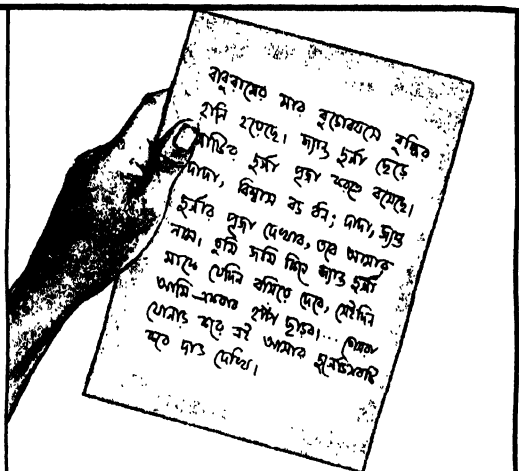 বাবুরামের মার বুড়োবয়সে বুদ্ধির
হানি হয়েছে। জ্যান্ত দুর্গা ছেড়ে
মাটির দুর্গা পূজা করতে বসেছে।
দাদা, বিশ্বাস বড় ধন; দাদা, জ্যান্ত
দুর্গার পূজা দেখাব, তবে আমার
নাম। তুমি জমি কিনে জ্যান্ত দুর্গা
মাকে যেদিন বসিয়ে দেবে, সেইদিন
আমি একবার হাঁফ ছাড়ব।...
যোগাড় করে এই আমার দুর্গোৎসবটি
করে দাও দেখি।